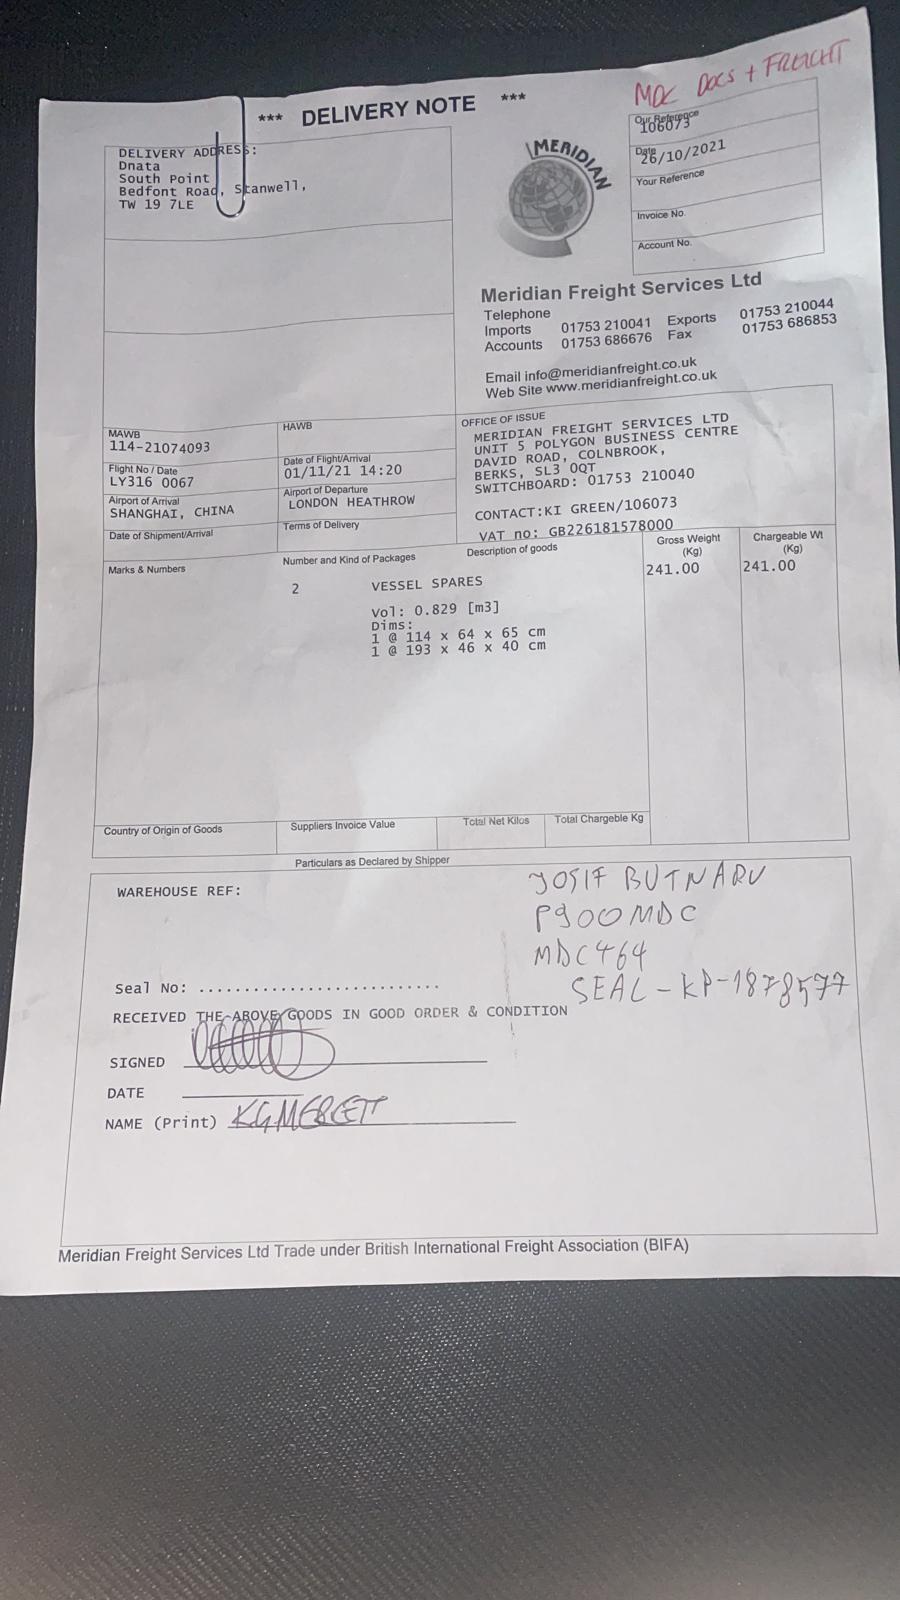 MDC DOCS + FREIGHT
*** DELIVERY NOTE ***
DELIVERY ADDRESS:
Dnata
South Point
Bedfont Road, Stanwell,
TW 19 7LE
MERIDIAN
Our Reference
106073
Date
26/10/2021
Your Reference
Invoice No.
Account No.
Meridian Freight Services Ltd
Telephone
Imports 01753 210041 Exports 01753 210044
Accounts 01753 686676 Fax 01753 686853
Email info@meridianfreight.co.uk
Web Site www.meridianfreight.co.uk
MAWB
114-21074093
HAWB
Flight No / Date
LY316 0067
Date of Flight/Arrival
01/11/21 14:20
Airport of Arrival
SHANGHAI, CHINA
Airport of Departure
LONDON HEATHROW
Date of Shipment/Arrival
Terms of Delivery
OFFICE OF ISSUE
MERIDIAN FREIGHT SERVICES LTD
UNIT 5 POLYGON BUSINESS CENTRE
DAVID ROAD, COLNBROOK,
BERKS, SL3 0QT
SWITCHBOARD: 01753 210040
CONTACT:KI GREEN/106073
VAT no: GB226181578000
Marks & Numbers
Number and Kind of Packages
Description of goods
Gross Weight
(Kg)
Chargeable Wt
(Kg)
2 VESSEL SPARES 241.00 241.00
Vol: 0.829 [m3]
Dims:
1 @ 114 x 64 x 65 cm
1 @ 193 x 46 x 40 cm
Country of Origin of Goods
Suppliers Invoice Value
Total Net Kilos
Total Chargeble Kg
Particulars as Declared by Shipper
WAREHOUSE REF:
JOSIF BUTNARU
P900MDC
MDC464
SEAL-KP-1878577
Seal No: ..........................
RECEIVED THE ABOVE GOODS IN GOOD ORDER & CONDITION
SIGNED
DATE
NAME (Print)
Meridian Freight Services Ltd Trade under British International Freight Association (BIFA)